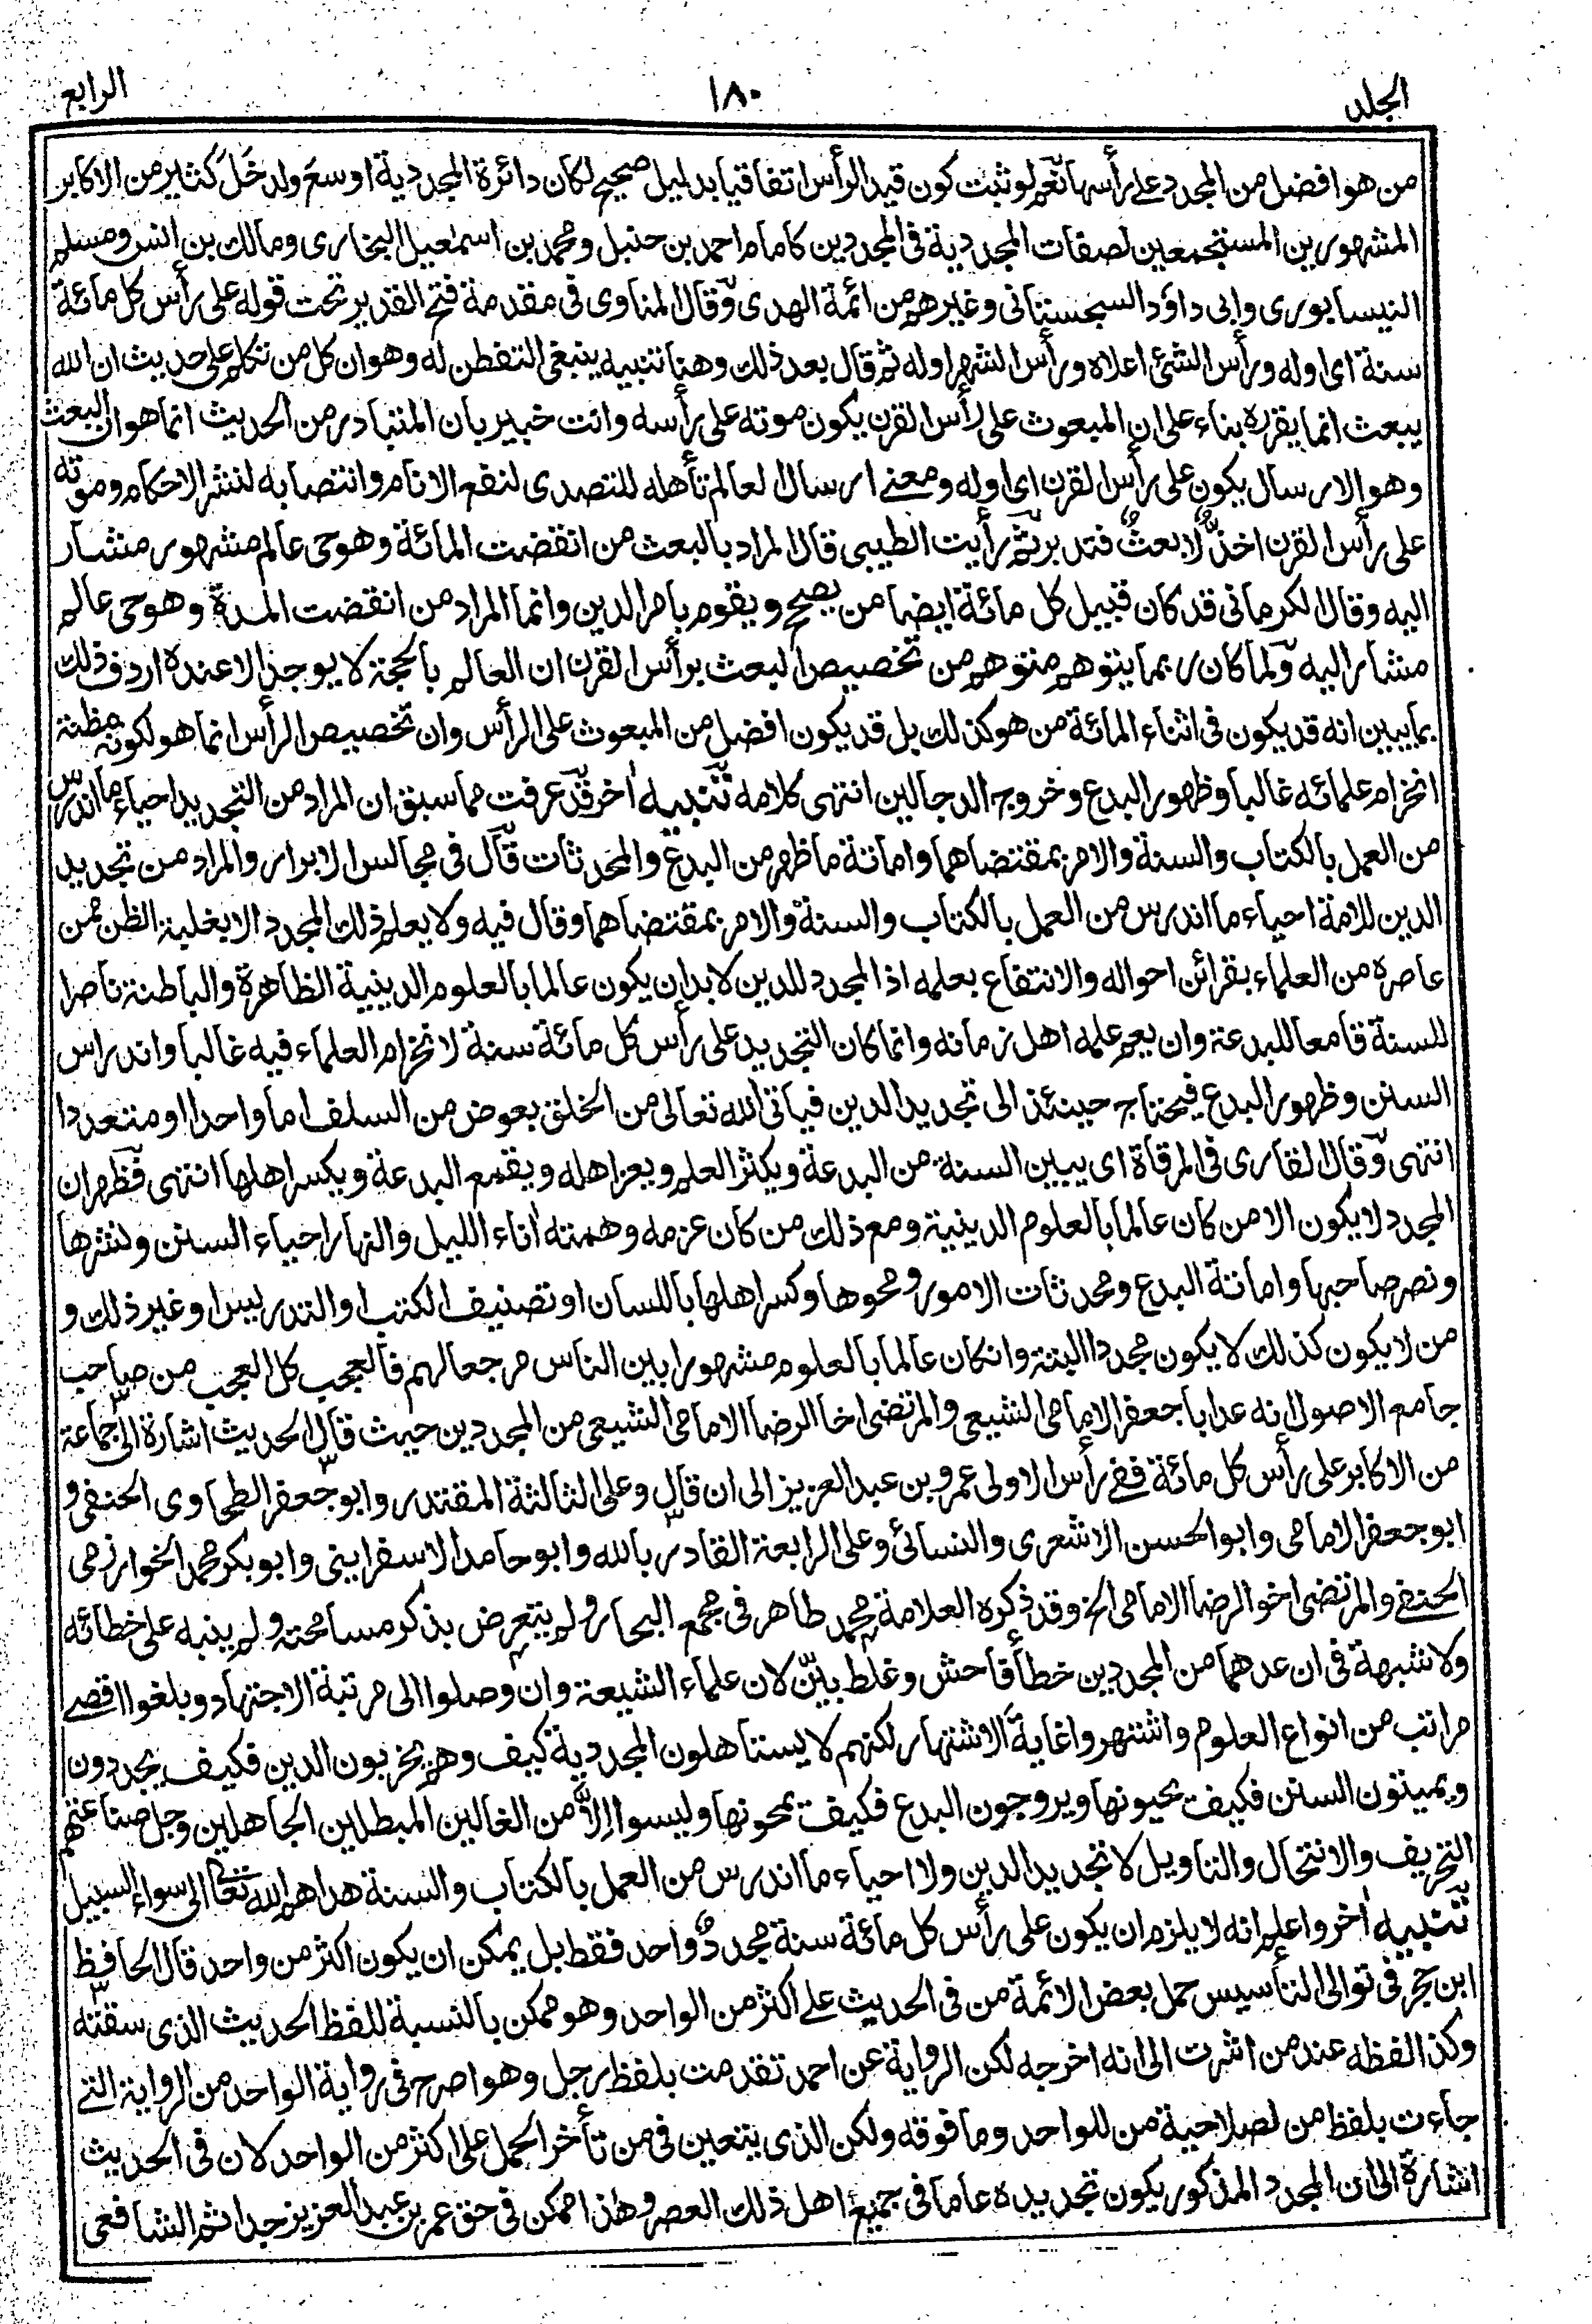 الجلد
١٨٠
الرابع
من هو افضل من المجدد على رأسها نعم لو ثبت كون قيد الرأس اتفاقيا بدليل صحيح لكان دائرة المجددية اوسع ولدخل كثير من الاكابر
المشهورين المستجمعين لصفات المجددية فى المجددين كامام احمد بن حنبل ومحمد بن اسمعيل البخارى ومالك بن انس ومسلم
النيسابورى وابى داود السجستانى وغيرهم من ائمة الهدى وقال المناوى فى مقدمة فتح القدير تحت قوله على رأس كل مائة
سنة اى اوله ورأس الشئ اعلاه ورأس الشهر اوله ثم قال بعد ذلك وهنا تنبيه ينبغى التفطن له وهو ان كل من تكلم على حديث ان الله
يبعث انما يقرره بناء على ان المبعوث على رأس القرن يكون موته على رأسه وانت خبير بان المتبادر من الحديث انما هو ان البعث
وهو الارسال يكون على رأس القرن اى اوله ومعنے ارسال العالم تأهله للتصدى لنفع الانام وانتصابه لنشر الاحكام وموته
على رأس القرن اخذٌ لا بعثٌ فتدبر ثم رأيت الطيبى قال المراد بالبعث من انقضت المائة وهو حى عالم مشهور مشار
اليه وقال الكرمانى قد كان قبيل كل مائة ايضا من يصحح ويقوم بامر الدين وانما المراد من انقضت المدة وهو حى عالم
مشار اليه ولما كان ربما يتوهم متوهم من تخصيص البعث برأس القرن ان العالم بالحجة لا يوجد الا عنده اردف ذلك
بما يبين انه قد يكون فى اثناء المائة من هو كذلك بل قد يكون افضل من المبعوث على الرأس وان تخصيص الرأس انما هو لكونه مظنة
انخرام علمائه غالبا وظهور البدع وخروج الدجالين انتهى كلامه تنبيه اٰخر قد عرفت مما سبق ان المراد من التجديد احياء ما اندرس
من العمل بالكتاب والسنة والامر بمقتضاهما واماتة ما ظهر من البدع والمحدثات قال فى مجالس الابرار والمراد من تجديد
الدين للامة احياء ما اندرس من العمل بالكتاب والسنة والامر بمقتضاهما وقال فيه ولا يعلم ذلك المجدد الا بغلبة الظن ممن
عاصره من العلماء بقرائن احواله والانتفاع بعلمه اذ المجدد للدين لا بد ان يكون عالما بالعلوم الدينية الظاهرة والباطنة ناصرا
للسنة قامعا للبدعة وان يعم علمه اهل زمانه وانما كان التجديد على رأس كل مائة سنة لانخرام العلماء فيه غالبا واندراس
السنن وظهور البدع فيحتاج حينئذ الى تجديد الدين فياتى الله تعالى من الخلق بعوض من السلف اما واحدا او متعددا
انتهى وقال القارى فى المرقاة اى يبين السنة من البدعة ويكثر العلم ويعز اهله ويقمع البدعة ويكسر اهلها انتهى فظهر ان
المجدد لا يكون الا من كان عالما بالعلوم الدينية ومع ذلك من كان عزمه وهمته اٰناء الليل والنهار احياء السنن ونشرها
ونصر صاحبها واماتة البدع ومحدثات الامور ومحوها وكسر اهلها باللسان او تصنيف الكتب او التدريس او غير ذلك و
من لا يكون كذلك لا يكون مجددا البتة وانكان عالما بالعلوم مشهورا بين الناس مرجعا لهم فالعجب كل العجب من صاحب
جامع الاصول انه عد ابا جعفر الامامى الشيعى والمرتضى اخا الرضا الامامى الشيعى من المجددين حيث قال الحديث اشارة الى جماعة
من الاكابر على رأس كل مائة ففے رأس الاولى عمرو بن عبد العزيز الى ان قال وعلى الثالثة المقتدر وابو جعفر الطحاوى الحنفى و
ابو جعفر الامامى وابو الحسن الاشعرى والنسائى وعلى الرابعة القادر بالله وابو حامد الاسفراينى وابو بكر محمد الخوارزمى
الحنفے والمرتضى اخو الرضا الامامى الخ وقد ذكره العلامة محمد طاهر فى مجمع البحار ولم يتعرض بذكر مسامحته ولم ينبه على خطائه
ولا شبهة فى ان عدهما من المجددين خطأ فاحش وغلط بيّن لان علماء الشيعة وان وصلوا الى مرتبة الاجتهاد وبلغوا اقصے
مراتب من انواع العلوم واشتهروا غاية الاشتهار لكنهم لا يستاهلون المجددية كيف وهم يخربون الدين فكيف يجددون
ويميتون السنن فكيف يحيونها ويروجون البدع فكيف يمحونها وليسوا الا من الغالين المبطلين الجاهلين وجل صناعتهم
التحريف والانتحال والتاويل لا تجديد الدين ولا احياء ما اندرس من العمل بالكتاب والسنة هداهم الله تعالى الى سواء السبيل
تنبيه اٰخر واعلم انه لا يلزم ان يكون على رأس كل مائة سنة مجددٌ واحد فقط بل يمكن ان يكون اكثر من واحد قال الحافظ
ابن حجر فى توالى التأسيس حمل بعض الائمة من فى الحديث علے اكثر من الواحد وهو ممكن بالنسبة للفظ الحديث الذى سقته
وكذا لفظه عند من اشرت الى انه اخرجه لكن الرواية عن احمد تقدمت بلفظ رجل وهو اصرح فى رواية الواحد من الرواية التے
جاءت بلفظ من لصلاحية من للواحد وما فوقه ولكن الذى يتعين فى من تأخر الحمل على اكثر من الواحد لان فى الحديث
اشارة الى ان المجدد المذكور يكون تجديده عاما فى جميع اهل ذلك العصر وهٰذا ممكن فى حق عمر بن عبد العزيز جدا ثم الشافعى